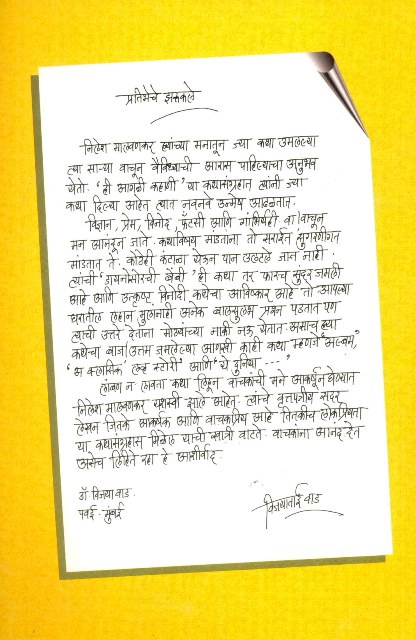 प्रतिभेचे झळाळणे
निलेश मालवणकर यांच्या मनातून ज्या कथा उमलल्या
त्या साऱ्या वाचून वैविध्याची आरास पाहिल्याचा अनुभव
येतो. 'ही आगळी कहाणी' या कथासंग्रहात त्यांनी ज्या
कथा दिल्या आहेत त्यात नवनवे उन्मेष आढळतात.
विज्ञान, प्रेम, विनोद, फँटसी आणि गांभिर्यही वाचून
मन आनंदून जाते. कथाविषय मांडताना तो सराईत सुगरणीगत
मांडतात ते. कोठेही कंटाळा येऊन पान उलटले जात नाही.
त्यांची 'डायनोसोरची बेबी' ही कथा तर फारच सुंदर जमली
आहे आणि उत्कृष्ट विनोदी कथेचा आविष्कार आहे तो. आपल्या
घरातील लहान मुलांनाही अनेक बालसुलभ प्रश्न पडतात पण
त्यांची उत्तरे देताना मोठ्यांच्या नाकी नऊ येतात. असाच ह्या
कथेचा बाज! उत्तम जमलेल्या आणखी काही कथा म्हणजे 'अल्बम',
'अ क्लासिक लव्ह स्टोरी' आणि 'ये दुनिया ---'
लांबण न लावता कथा लिहून वाचकांची मने आकर्षून घेण्यात
निलेश मालवणकर यशस्वी झाले आहेत. त्यांचे वृत्तपत्रीय सदर
लेखन जितके आकर्षक आणि वाचकप्रिय आहे तितकीच लोकप्रियता
या कथासंग्रहास मिळेल याची खात्री वाटते. वाचकांना आनंद देत
असेच लिहिते रहा हे आशीर्वाद.
डॉ विजया वाड.
पवई. मुंबई
विजयाताई वाड